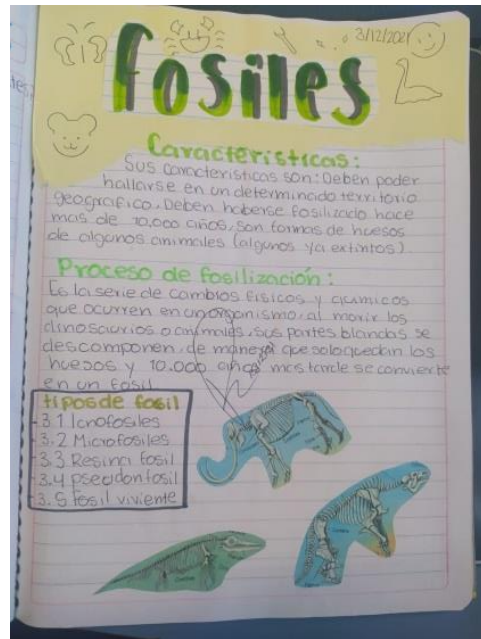 3/12/2021
fosiles
Caracteristicas:
Sus caracteristicas son: Deben poder
hallarse en un determinado territorio
geografico, Deben haberse fosilizado hace
mas de 10.000 años, son formas de huesos
de algunos animales (algunos ya extintos)
Proceso de fosilización:
Es la serie de cambios fisicos y quimicos
que ocurren en un organismo, al morir los
dinosaurios o animales, sus partes blandas se
descomponen, de manera que solo quedan los
huesos y 10.000 años mas tarde se convierte
en un fosil
tipos de fosil
3.1 Icnofosiles
3.2 Microfosiles
3.3 Resina fosil
3.4 pseudonfosil
3.5 fosil viviente